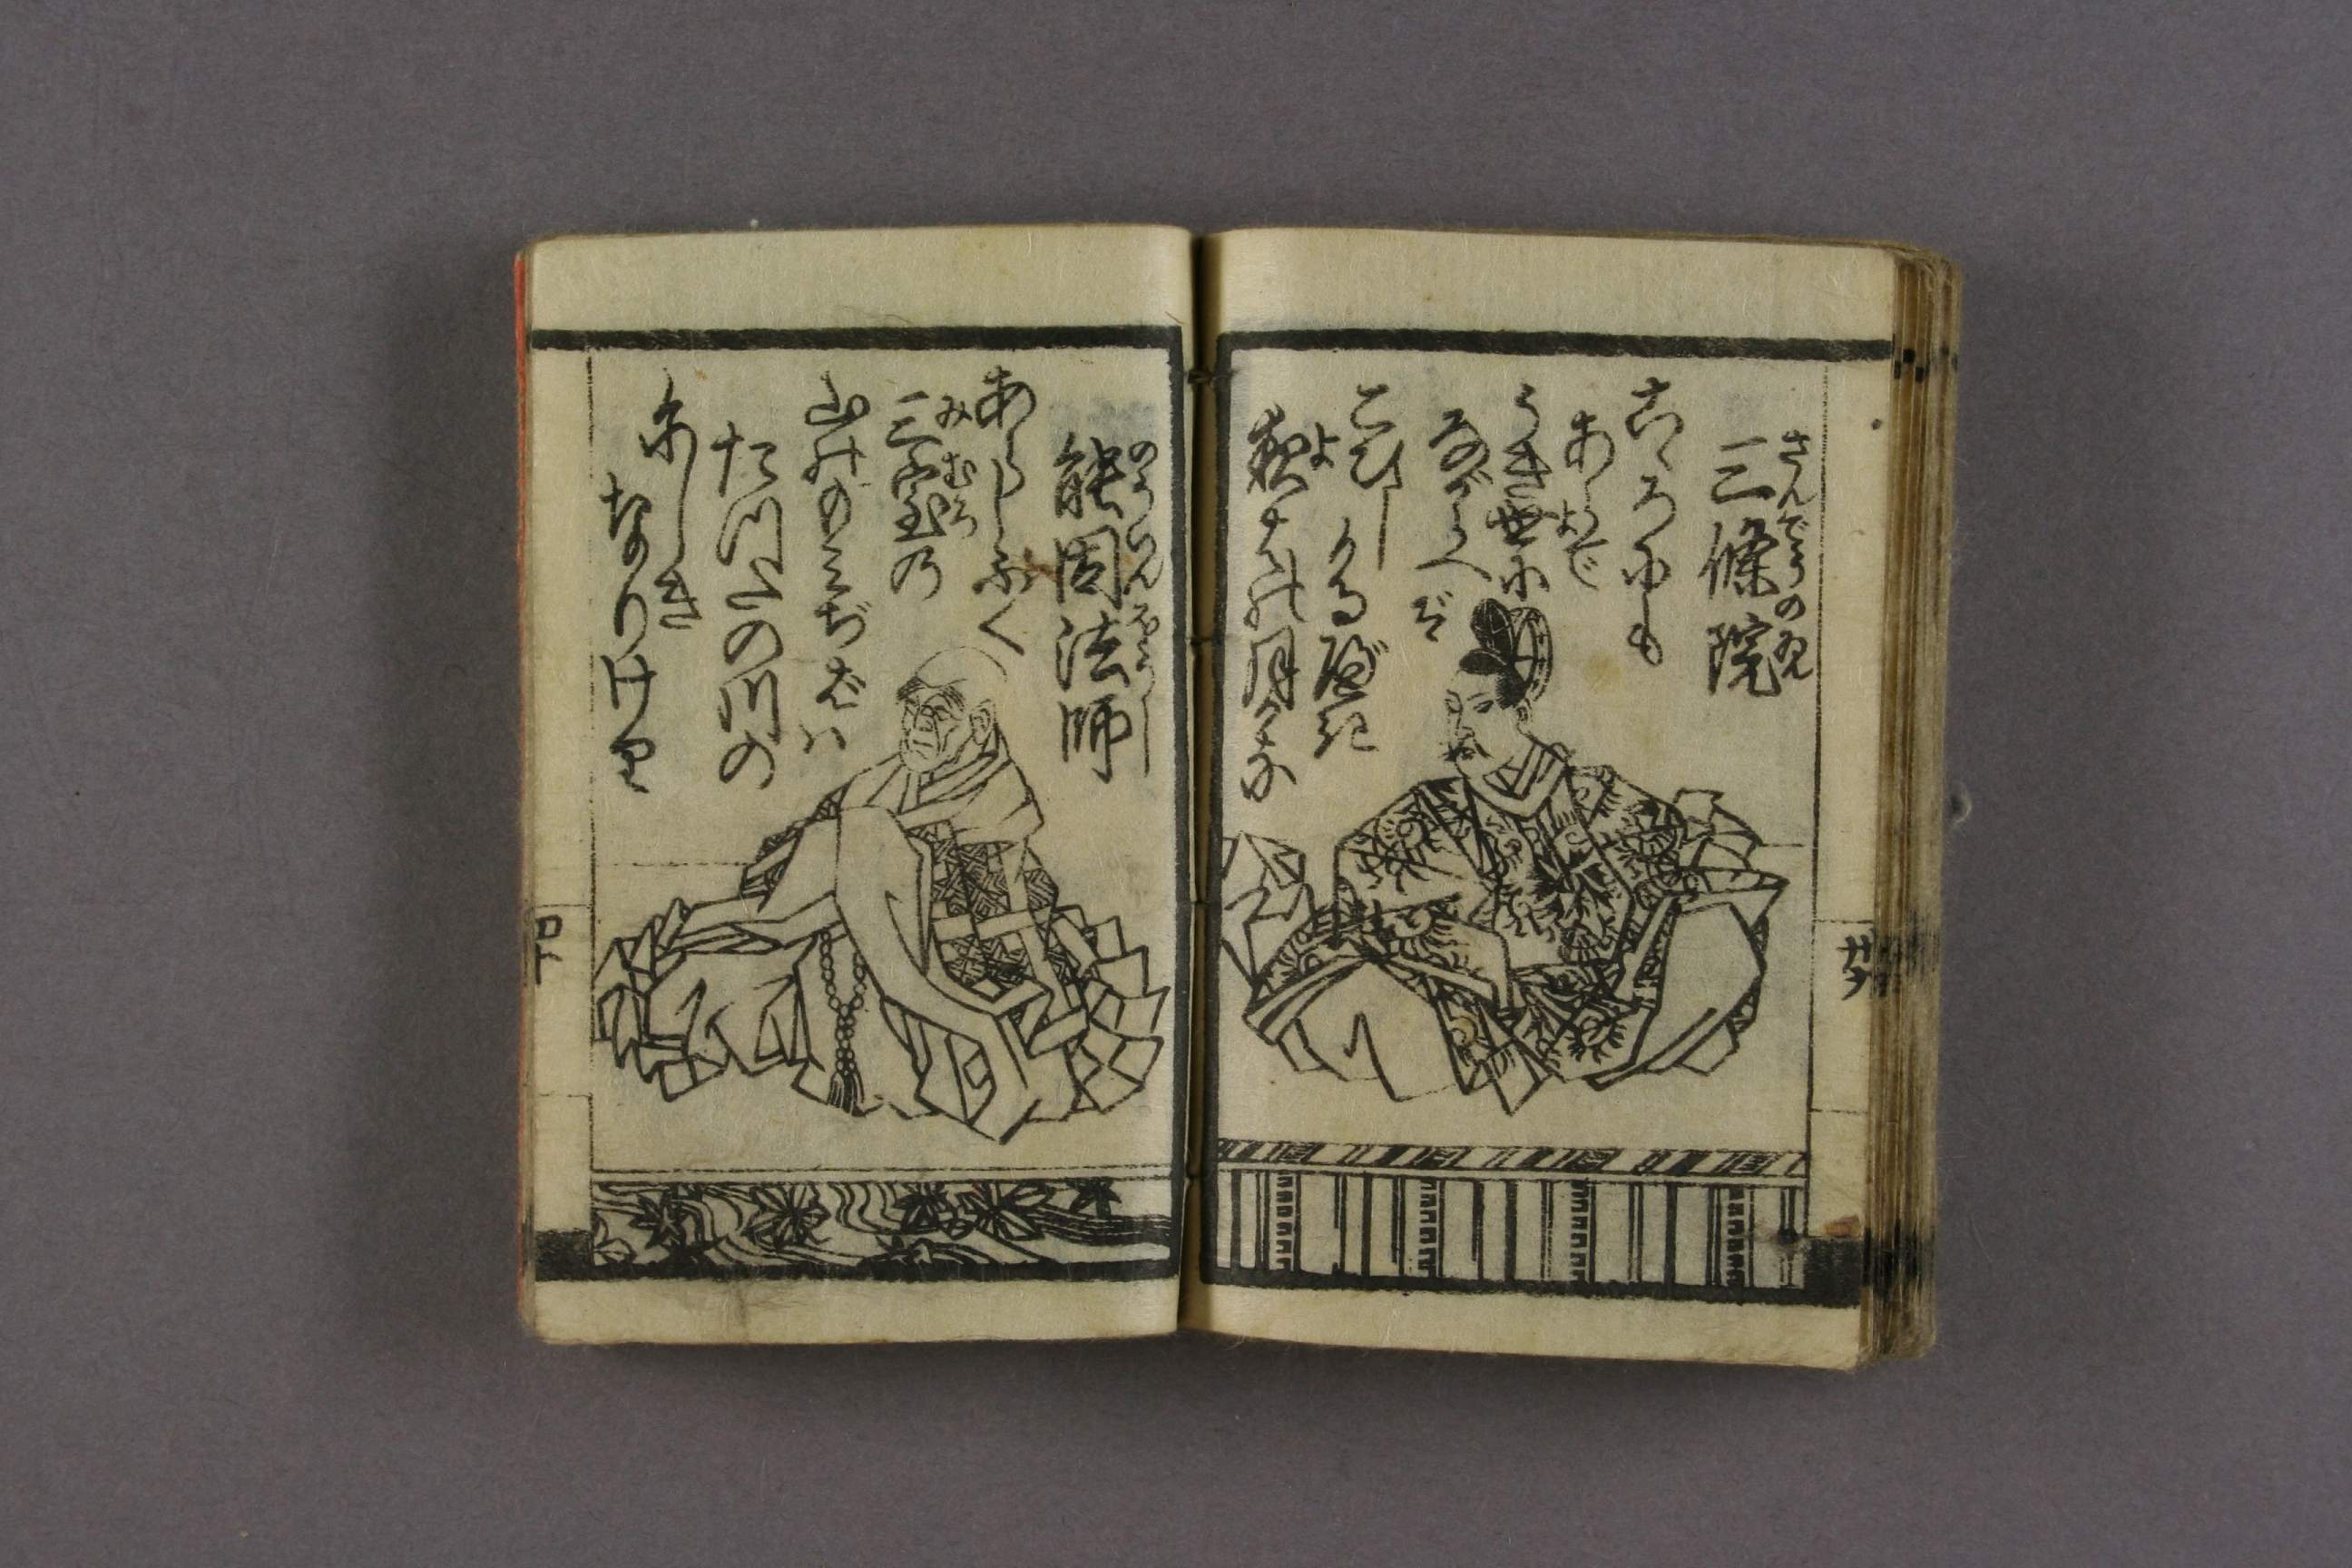 三條院
さんでうのゐん
こゝろにも
あらで
うき世に
ながらへ
ば
こひし
かるべき
夜はの月かな
よ
能因法師
のういんほうし
あらしふく
三室の
みむろ
山のもみぢばハ
たつたの川の
にしき
なりけり